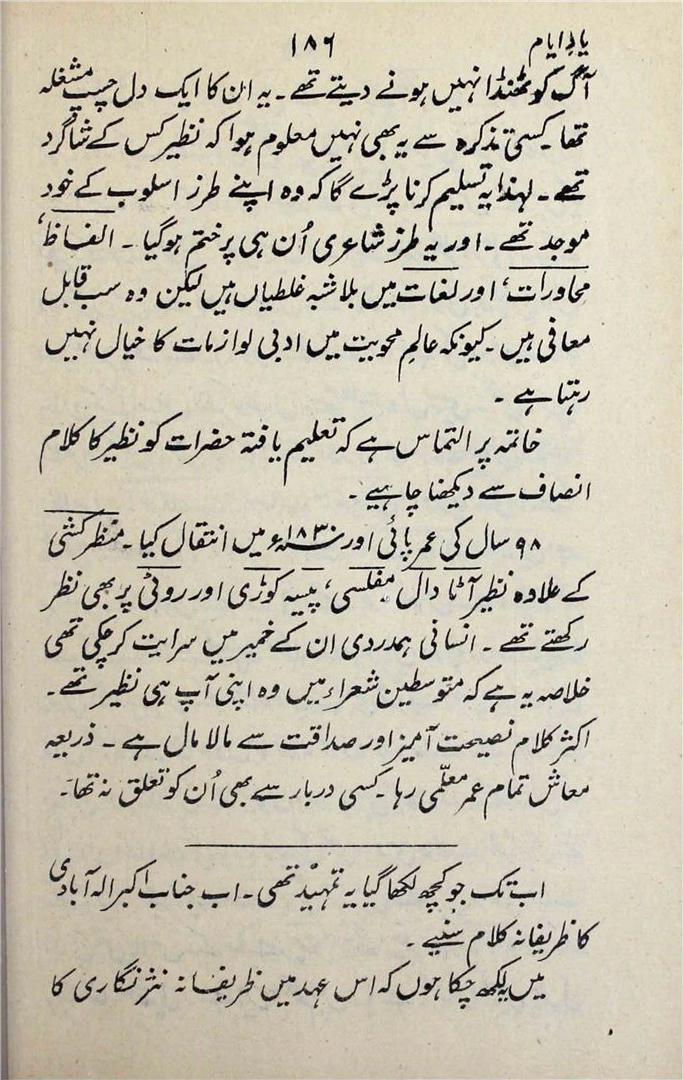 یادِ ایام ۱۸۶
آگ کو ٹھنڈا نہیں ہونے دیتے تھے ۔ یہ ان کا ایک دل چسپ مشغلہ
تھا ۔ کسی تذکرہ سے یہ بھی نہیں معلوم ہوا کہ نظیر کس کے شاگرد
تھے ۔ لہٰذا یہ تسلیم کرنا پڑے گا کہ وہ اپنے طرز اسلوب کے خود
موجد تھے ۔ اور یہ طرز شاعری اُن ہی پر ختم ہو گیا ۔ الفاظ،
محاورات، اور لغات میں بلا شبہ غلطیاں ہیں لیکن وہ سب قابل
معافی ہیں ۔ کیونکہ عالمِ محویت میں ادبی لوازمات کا خیال نہیں
رہتا ہے ۔
خاتمہ پر التماس ہے کہ تعلیم یافتہ حضرات کو نظیر کا کلام
انصاف سے دیکھنا چاہیے ۔
۹۸ سال کی عمر پائی اور ۱۸۳۰ء میں انتقال کیا ۔ منظر کشی
کے علاوہ نظیر آٹا دال مفلسی، پیسہ کوڑی اور روٹی پر بھی نظر
رکھتے تھے ۔ انسانی ہمدردی ان کے خمیر میں سرایت کر چکی تھی
خلاصہ یہ ہے کہ متوسطین شعراء میں وہ اپنی آپ ہی نظیر تھے ۔
اکثر کلام نصیحت آمیز اور صداقت سے مالا مال ہے ۔ ذریعہ
معاش تمام عمر معلّمی رہا ۔ کسی دربار سے بھی اُن کو تعلق نہ تھا ۔
اب تک جو کچھ لکھا گیا یہ تمہید تھی ۔ اب جناب اکبر الہ آبادی
کا ظریفانہ کلام سنیے ۔
میں یہ لکھ چکا ہوں کہ اس عہد میں ظریفانہ نثر نگاری کا